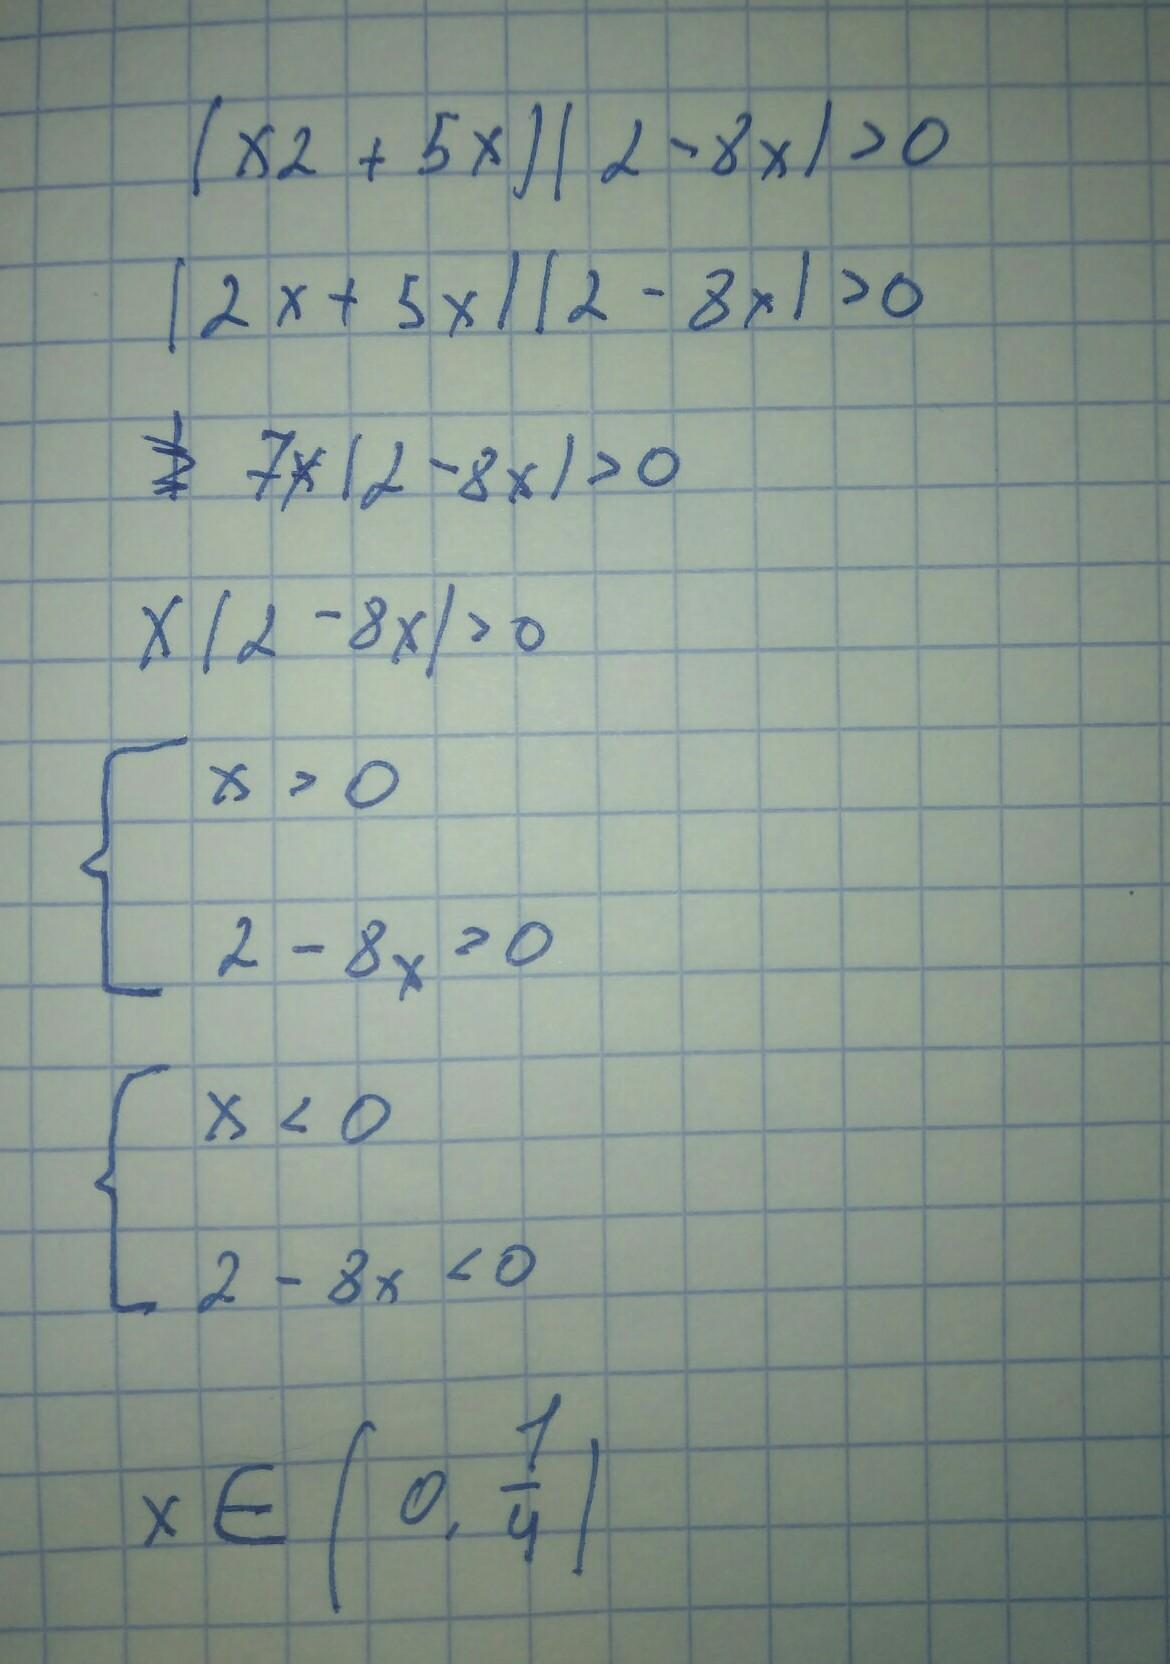 (x2 + 5x)(2 - 8x) > 0
(2x + 5x)(2 - 8x) > 0
7x(2 - 8x) > 0
x(2 - 8x) > 0
x > 0
2 - 8x > 0
x < 0
2 - 8x < 0
x ∈ (0, 1/4)